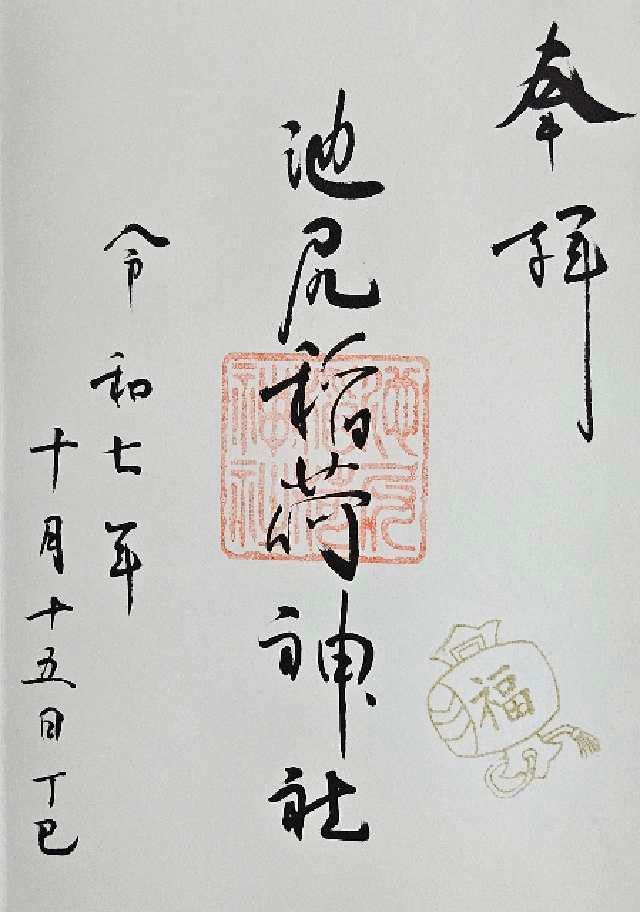 奉拝
池尻稲荷神社
池尻稲荷神社
令和七年
十月十五日丁巳
福